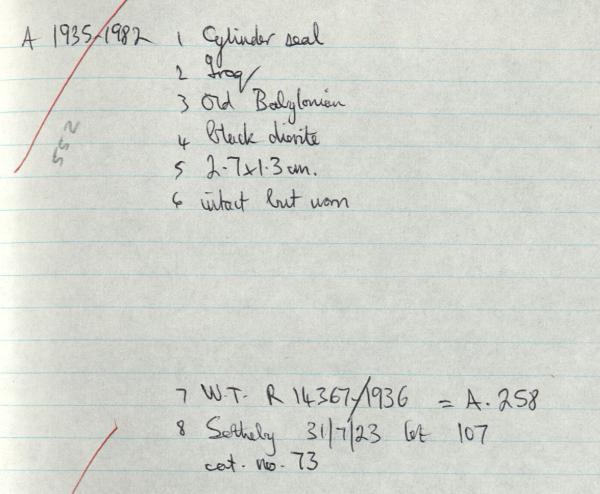 A 1935-1982 1 Cylinder seal
2 Iraq/
3 Old Babylonian
4 black diorite
5 2.7x1.3 cm.
6 intact but worn
7 W.T. R 14367/1936 = A.258
8 Sotheby 31/7/23 lot 107
cat. no. 73